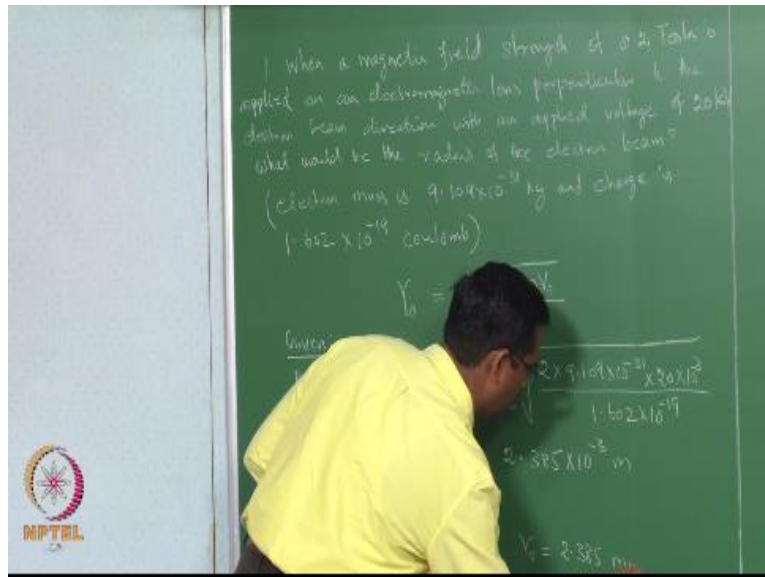 1 When a magnetic field strength of 0.2 Tesla is
applied on an electromagnetic lens perpendicular to the
electron beam direction with an applied voltage of 20 kV
what would be the radius of the electron beam?
(electron mass is 9.109×10⁻³¹ kg and charge is
1.602 × 10⁻¹⁹ coulomb)
r₀ =
Given
2 × 9.109×10⁻³¹ × 20×10³
1.602×10⁻¹⁹
2.385 ×10⁻³ m
r₀ = 2.385 m
NPTEL